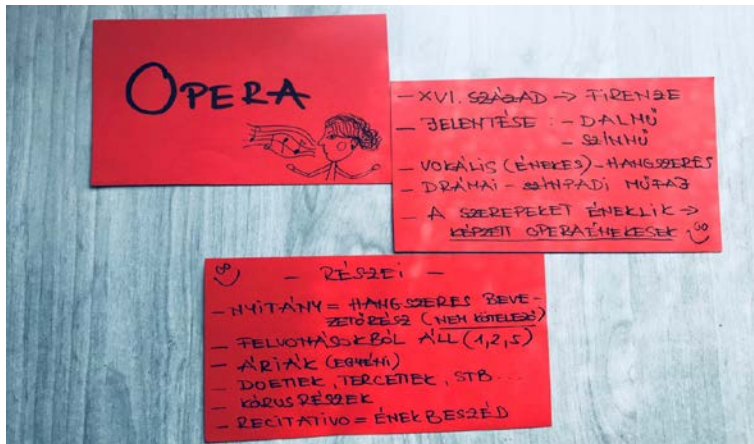 OPERA
- XVI. SZÁZAD → FIRENZE
- JELENTÉSE : - DALMŰ
- SZÍNMŰ
- VOKÁLIS (ÉNEKES) - HANGSZERES
- DRÁMAI - SZÍNPADI MŰFAJ
- A SZEREPEKET ÉNEKLIK →
KÉPZETT OPERAÉNEKESEK
- RÉSZEI -
- NYITÁNY = HANGSZERES BEVE-
ZETŐRÉSZ (NEM KÖTELEZŐ)
- FELVONÁSOKBÓL ÁLL (1,2,5)
- ÁRIÁK (EGYÉNI)
- DUETTEK, TERCETTEK, STB...
- KÓRUSRÉSZEK
- RECITATIVO = ÉNEKBESZÉD